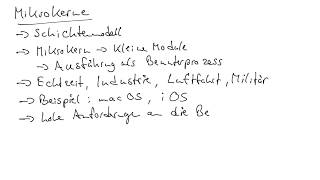 Mikrokerne
→ Schichtenmodell
→ Mikrokern → kleine Module
→ Ausführung als Benutzerprozess
→ Echtzeit, Industrie, Luftfahrt, Militär
→ Beispiel: macOS, iOS
→ hohe Anforderungen an die Be